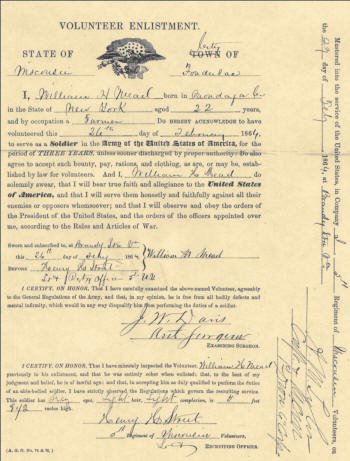 VOLUNTEER ENLISTMENT.
STATE OF city TOWN OF
Wisconsin Fondulac
I, William H Mead born in Onondaga Co
in the State of New York aged 22 years,
and by occupation a Farmer Do HEREBY ACKNOWLEDGE to have
volunteered this 26th day of February 1864,
to serve as a Soldier in the Army of the United States of America, for the
period of THREE YEARS, unless sooner discharged by proper authority: Do also
agree to accept such bounty, pay, rations, and clothing, as are, or may be, estab-
lished by law for volunteers. And I, William H Mead do
solemnly swear, that I will bear true faith and allegiance to the United States
of America, and that I will serve them honestly and faithfully against all their
enemies or opposers whomsoever; and that I will observe and obey the orders of
the President of the United States, and the orders of the officers appointed over
me, according to the Rules and Articles of War.
Sworn and subscribed to, at Brandy Sta Va
this 26th day of Feby 1864 William H Mead
BEFORE Henry
I CERTIFY, ON HONOR, That I have carefully examined the above-named Volunteer, agreeably
to the General Regulations of the Army, and that, in my opinion, he is free from all bodily defects and
mental infirmity, which would in any way disqualify him from performing the duties of a soldier.
J. W. Davis
Asst Surgeon
EXAMINING SURGEON.
I CERTIFY, ON HONOR, That I have minutely inspected the Volunteer, William H Mead
previously to his enlistment, and that he was entirely sober when enlisted; that, to the best of my
judgment and belief, he is of lawful age; and that, in accepting him as duly qualified to perform the duties
of an able-bodied soldier, I have strictly observed the Regulations which govern the recruiting service.
This soldier has Grey eyes, Light hair, Light complexion, is 5 feet
8 1/2 inches high.
Henry
5th Regiment of Wisconsin Volunteers,
RECRUITING OFFICER.
(A. G. O. No. 74 & 76.)
Mustered into the service of the United States, in Company I 5th Regiment of Wisconsin Volunteers, on
the 29 day of Feby 1864, at Brandy Sta Va